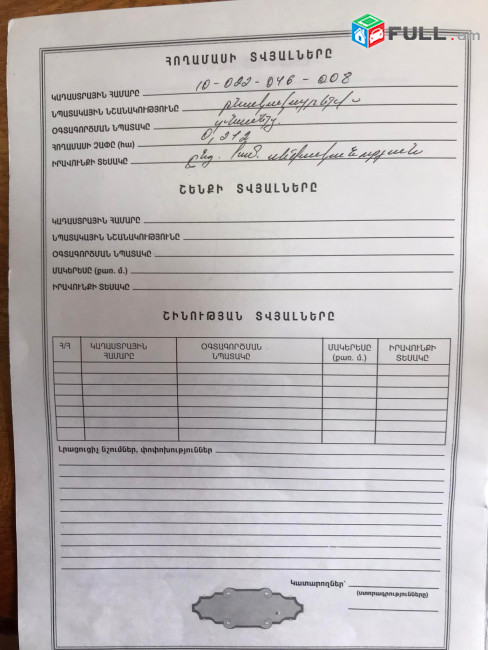 FULL.am
ՀՈՂԱՄԱՍԻ ՏՎՅԱԼՆԵՐԸ
ԿԱԴԱՍՏՐԱՅԻՆ ՀԱՄԱՐԸ 10-022-046-008
ՆՊԱՏԱԿԱՅԻՆ ՆՇԱՆԱԿՈՒԹՅՈՒՆԸ բնակավայրերի
ՕԳՏԱԳՈՐԾՄԱՆ ՆՊԱՏԱԿԸ
ՀՈՂԱՄԱՍԻ ՉԱՓԸ (հա) 0,212
ԻՐԱՎՈՒՆՔԻ ՏԵՍԱԿԸ ընդ. համ. սեփականություն
ՇԵՆՔԻ ՏՎՅԱԼՆԵՐԸ
ԿԱԴԱՍՏՐԱՅԻՆ ՀԱՄԱՐԸ
ՆՊԱՏԱԿԱՅԻՆ ՆՇԱՆԱԿՈՒԹՅՈՒՆԸ
ՕԳՏԱԳՈՐԾՄԱՆ ՆՊԱՏԱԿԸ
ՄԱԿԵՐԵՍԸ (քառ. մ.)
ԻՐԱՎՈՒՆՔԻ ՏԵՍԱԿԸ
ՇԻՆՈՒԹՅԱՆ ՏՎՅԱԼՆԵՐԸ
Հ/Հ ԿԱԴԱՍՏՐԱՅԻՆ ՕԳՏԱԳՈՐԾՄԱՆ ՄԱԿԵՐԵՍԸ ԻՐԱՎՈՒՆՔԻ
ՀԱՄԱՐԸ ՆՊԱՏԱԿԸ (քառ. մ.) ՏԵՍԱԿԸ
Լրացուցիչ նշումներ, փոփոխություններ
Կատարողներ՝
(ստորագրությունները)